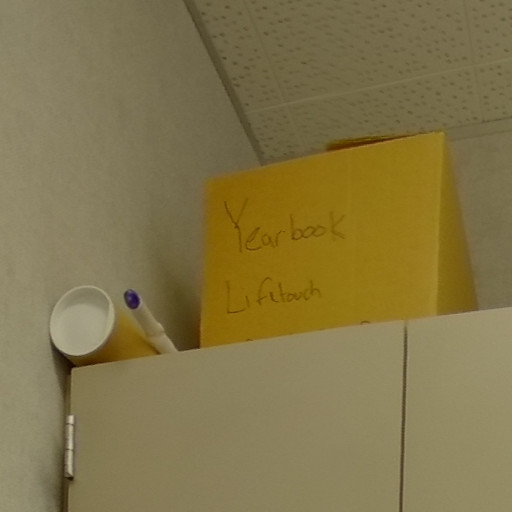 Yearbook
Lifetouch